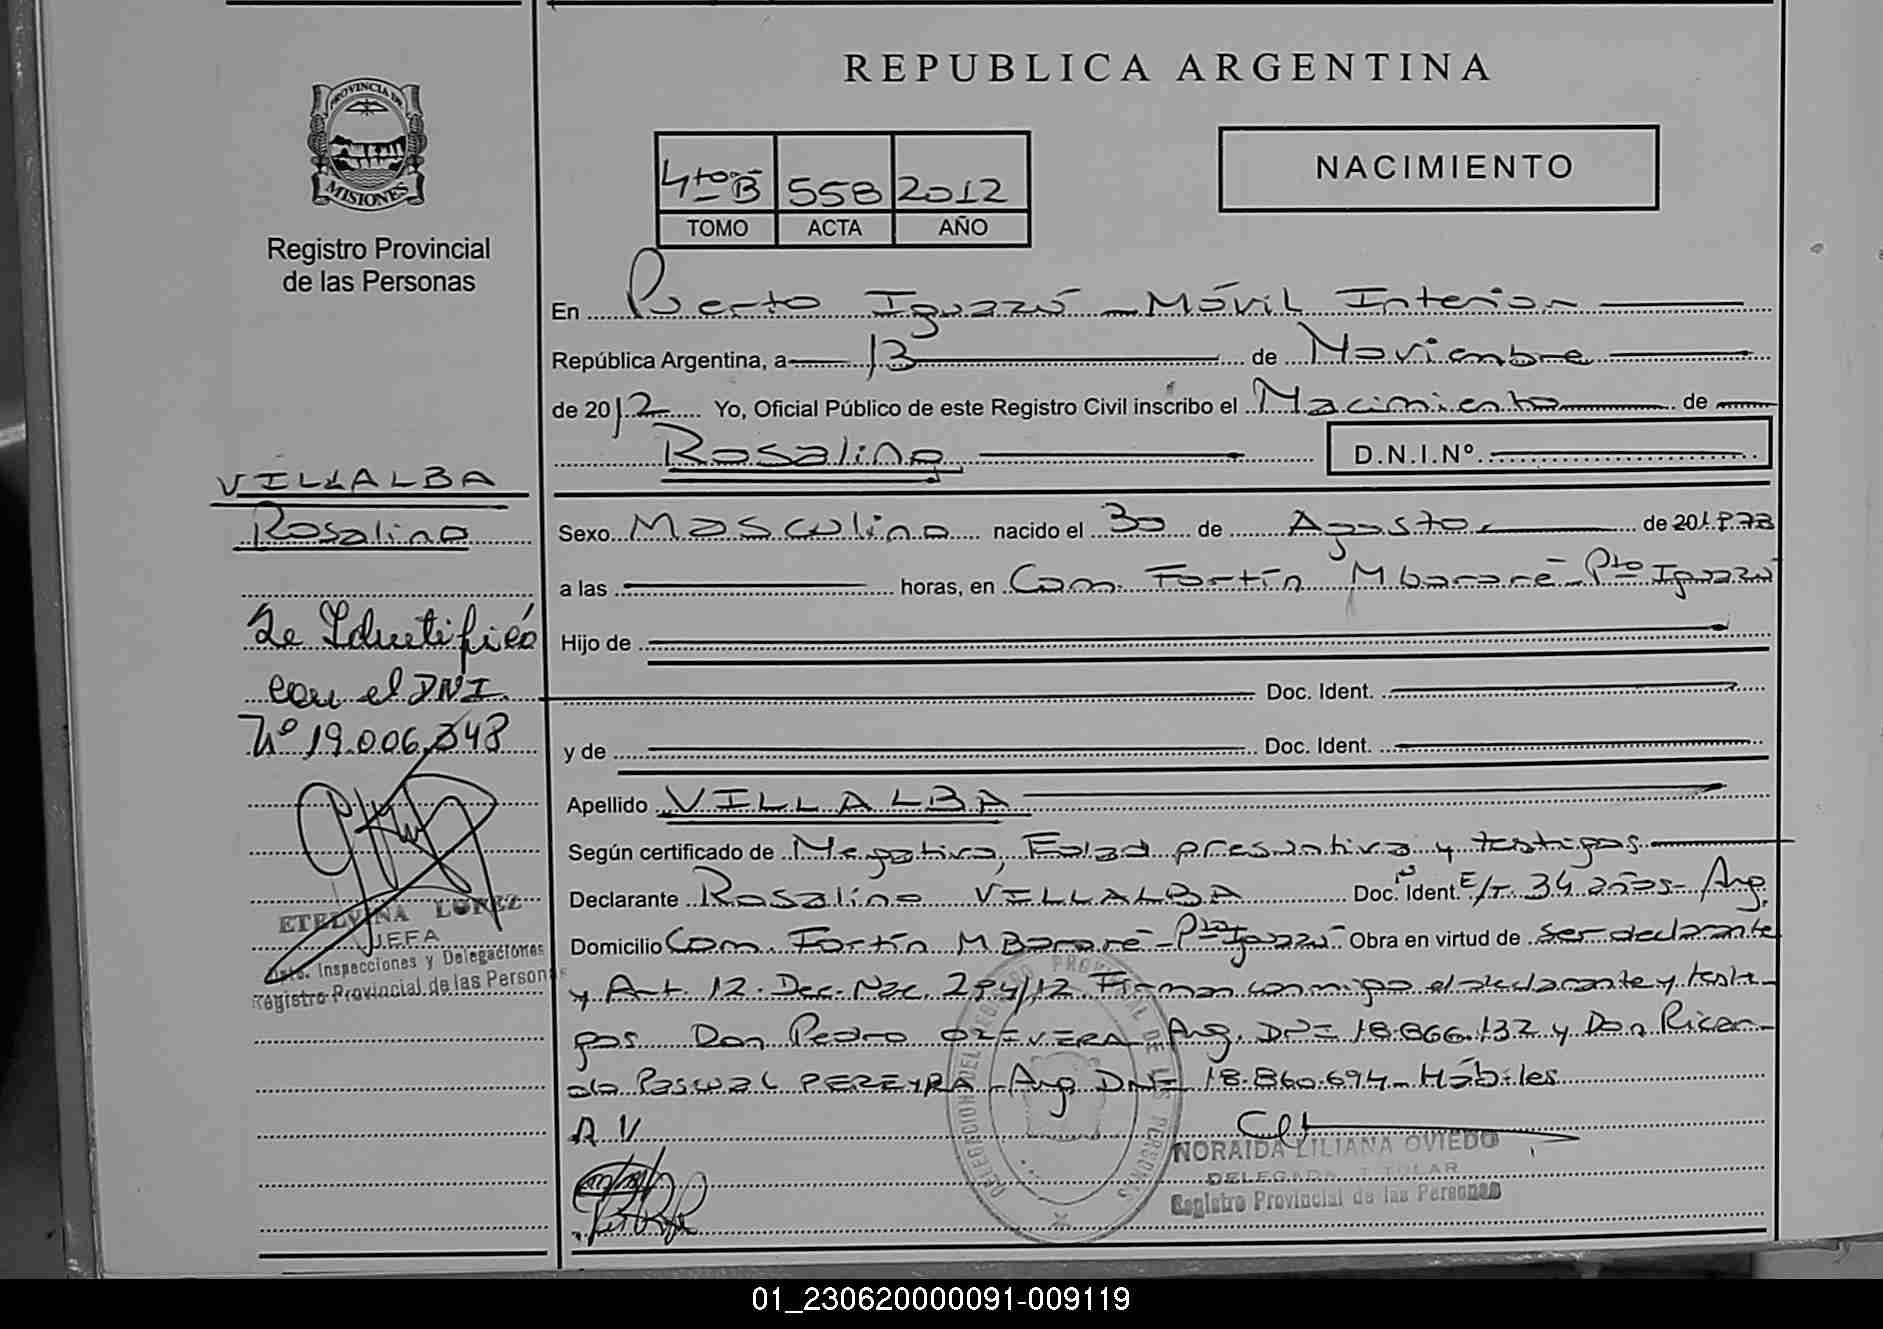 REPUBLICA ARGENTINA
PROVINCIA DE
MISIONES
Registro Provincial
de las Personas
4to B 558 2012
TOMO ACTA AÑO
NACIMIENTO
En Puerto Iguazú - Móvil Interior
República Argentina, a 13 de Noviembre
de 2012 Yo, Oficial Público de este Registro Civil inscribo el Nacimiento de
Rosalino D.N.I.Nº
VILLALBA
Rosalino
Se Identificó
con el DNI.
Nº 19.006.348
ETELVINA LOPEZ
JEFA
Dpto. Inspecciones y Delegaciones
Registro Provincial de las Personas
Sexo Masculino nacido el 30 de Agosto de 1978
a las horas, en Com. Fortín Mbararé - Pto Iguazú
Hijo de
Doc. Ident.
y de Doc. Ident.
Apellido VILLALBA
Según certificado de Negativa, Edad presuntiva y testigos
Declarante Rosalino VILLALBA Doc. Ident. E/T. 34 años - Arg.
Domicilio Com. Fortín MBararé - Pto Iguazú Obra en virtud de ser declarante
y Art. 12. Dec. Nac. 294/12 Firman conmigo el declarante y testi-
gos Don Pedro OLIVERA Arg. DNI 18.866.132 y Don Ricar-
do Pascual PEREYRA - Arg. DNI 18.860.694 - Hábiles
R V
NORAIDA LILIANA OVIEDO
DELEGADA TITULAR
Registro Provincial de las Personas
DELEGACION DEL REGISTRO PROVINCIAL DE LAS PERSONAS
01_230620000091-009119